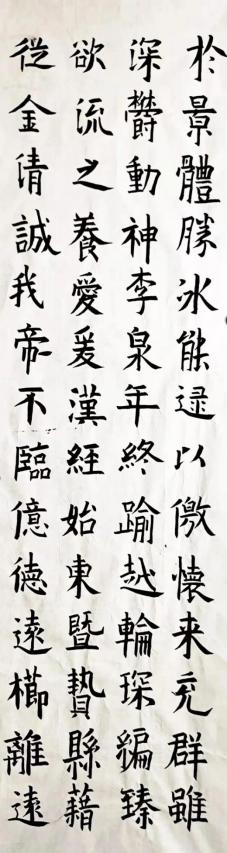 於景體勝冰能逯以儌懷来充群雖
深欝動神李泉年終踰越輪琛編臻
欲流之養愛爰漢經始東暨贄縣藉
從金清誠我帝不臨億德遠櫛離遠